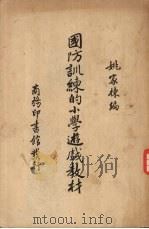 姚家棟編
國防訓練的小學遊戲教材
商務印書館